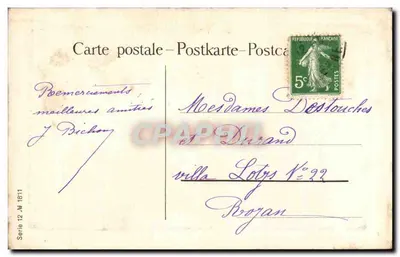 Carte postale – Postkarte – Postcard
REPUBLIQUE FRANÇAISE
5c
POSTES
Remerciements,
meilleures amitiés
J Bichon
Mesdames Destouches
et Durand
villa Lotys No 22
Royan
CPAPHIL
Serie 12 № 1811